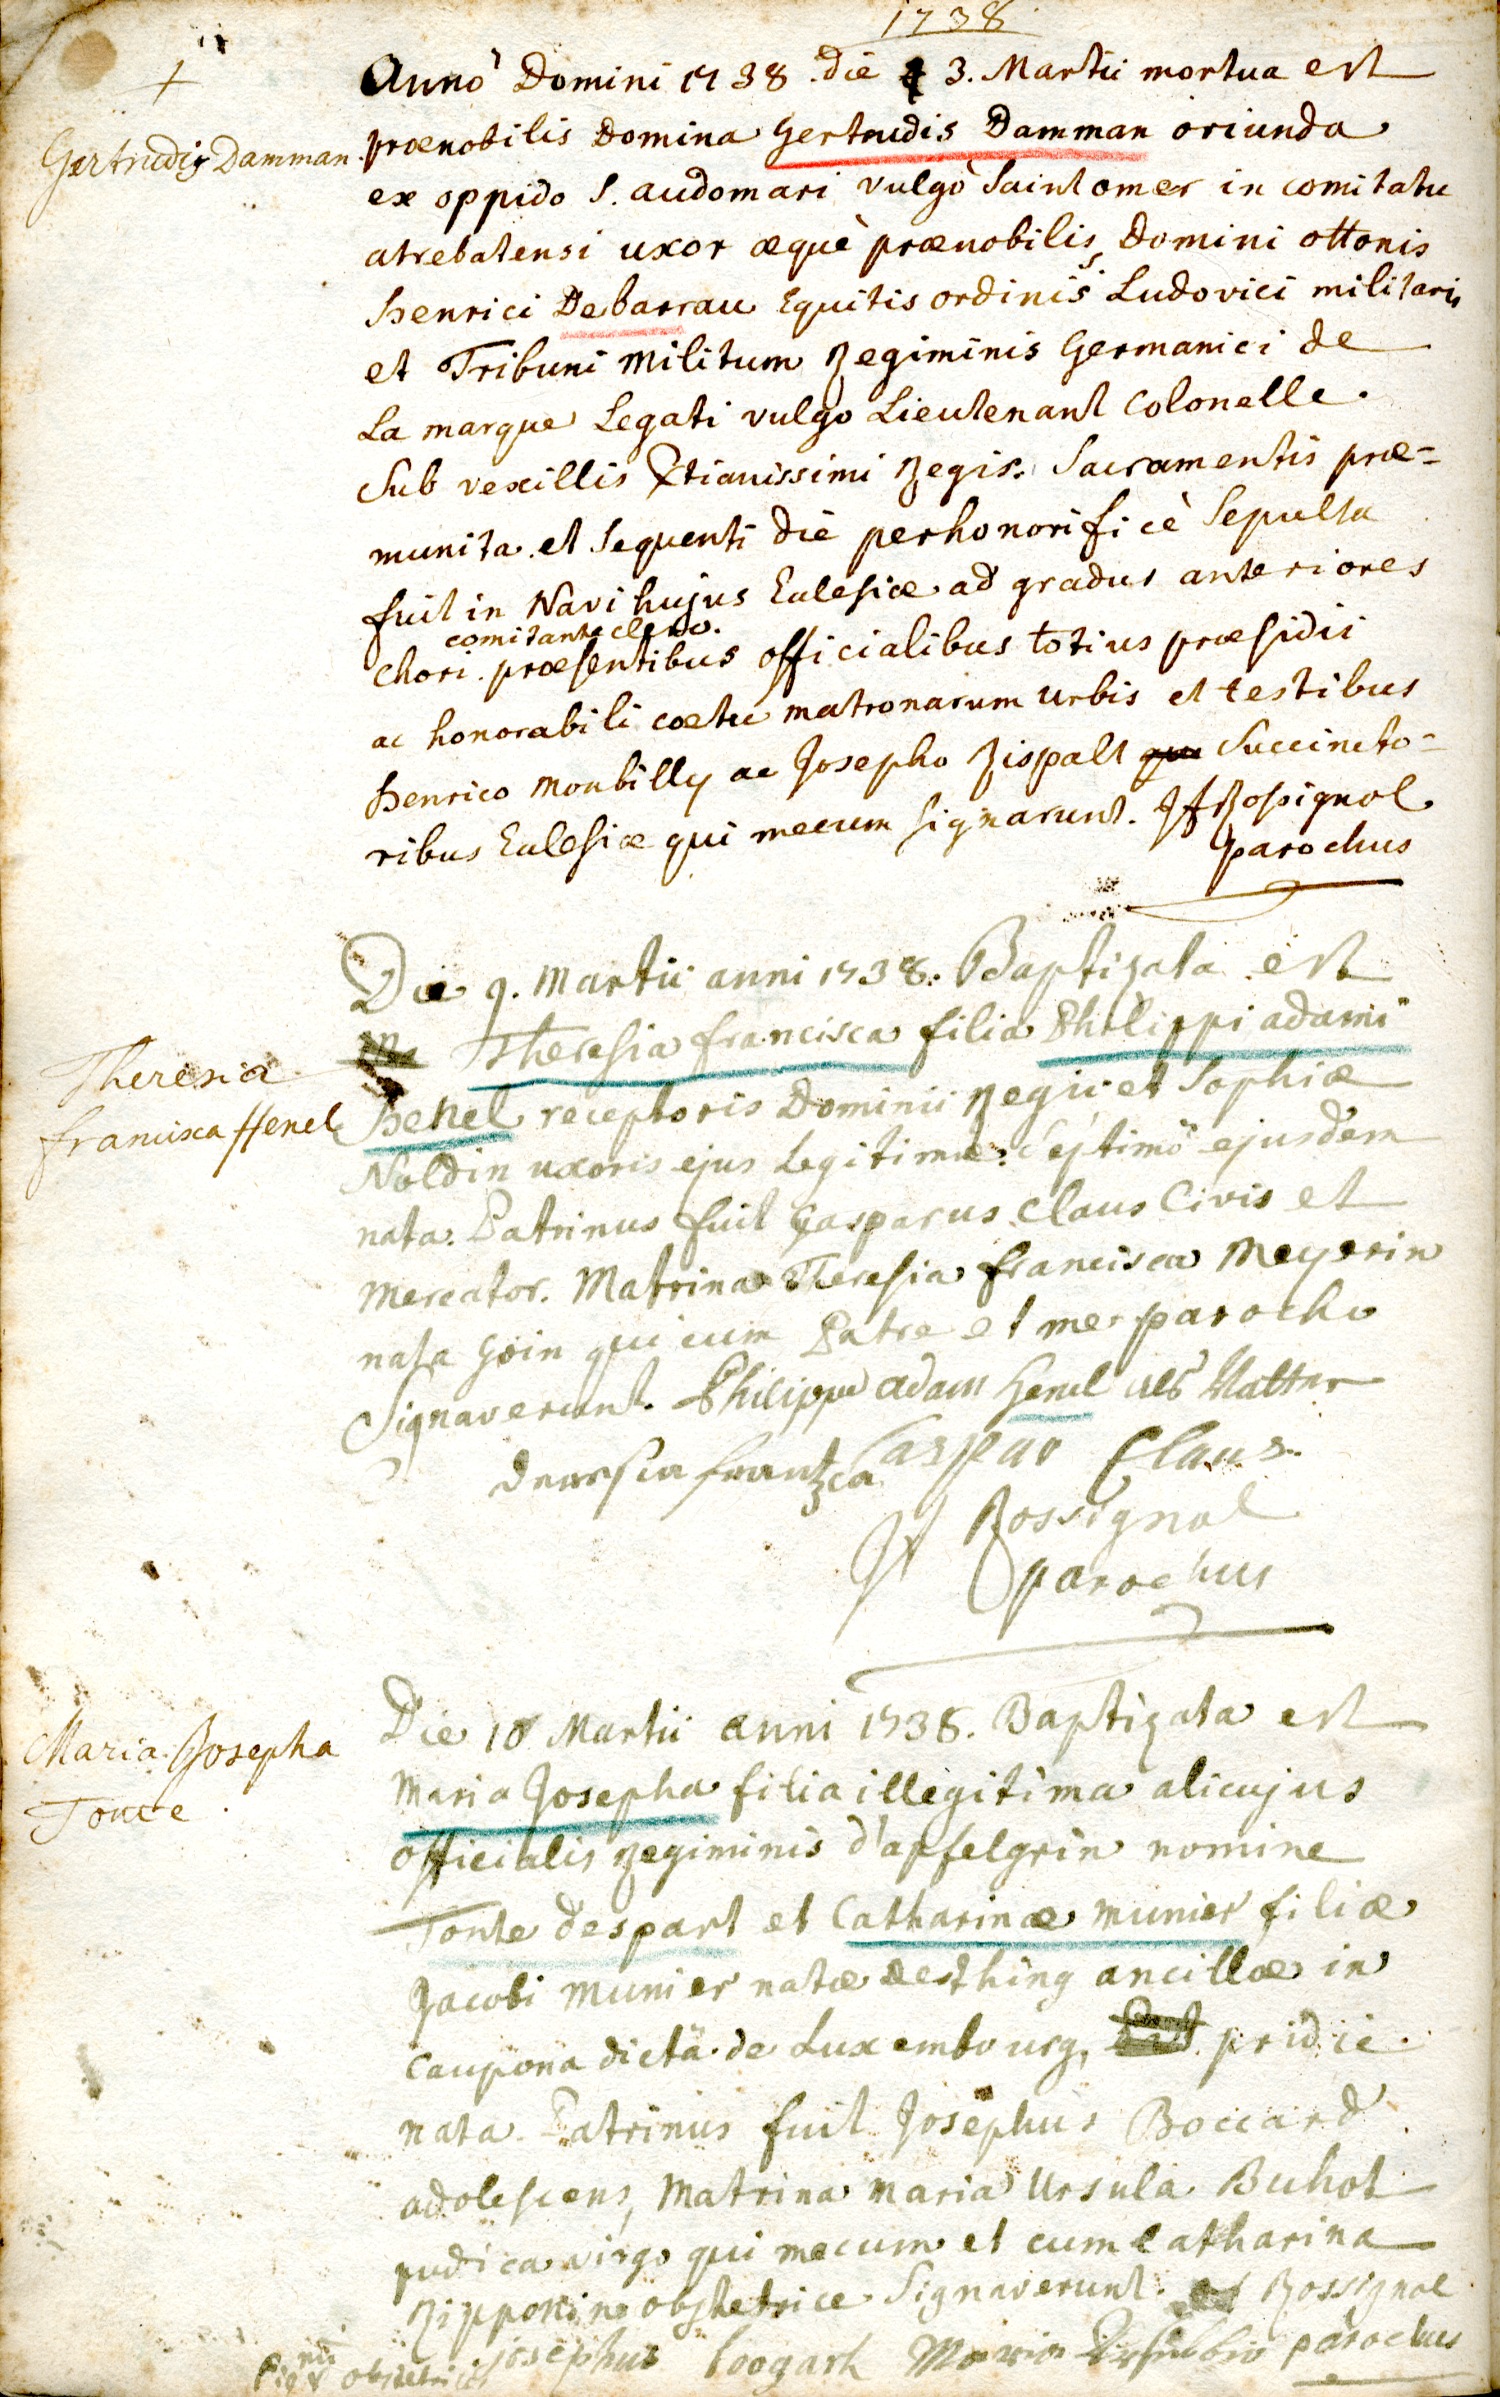 1738
+
Gertrudis Damman
Anno Domini 1738 die 3. Martii mortua est
prænobilis Domina Gertrudis Damman oriunda
ex oppido S. audomari vulgò Saint omer in comitatu
atrebatensi uxor æquè prænobilis Domini ottonis
henrici Debarrau Equitis ordinis S. Ludovici militaris
et Tribuni Militum Regiminis Germanici de
La marque Legati vulgo Lieutenant Colonelle.
Sub vexillis Xtianissimi Regis. Sacramentis præ=
munita et Sequenti die perhonorificè Sepulta
fuit in Navi hujus Eclesiæ ad gradus anteriores
comitante clero.
Chori. præsentibus officialibus totius præsidii
ac honorabili coetu matronarum urbis et testibus
henrico monbilly ac Josepho Rispalt Succincto=
ribus Eclesiæ qui mecum signarunt. JF Rossignol
parochus
Theresia
francisca Henel
Die 9. Martii anni 1738. Baptizata est
Theresia francisca filia Philippi adami
henel receptoris Dominii Regii et Sophiæ
Noldin uxoris ejus Legitimæ. Septimo ejusdem
nata. Patrinus fuit Gasparus Claus Civis et
Mercator. Matrina Theresia francisca Meyerin
nata Goin qui cum Patre et me parocho
Signaverunt. Philipp adam Henel als Vatter
Caspar Claus
JF Rossignol
parochus
Maria Josepha
Tonte
Die 10 Martii anni 1738. Baptizata est
Maria Josepha filia illegitima alicujus
officialis Regiminis d'apfelgrin nomine
Tonte despart et Catharinæ munier filiæ
Jacobi Munier natæ desthing ancillæ in
Caupona dictâ de Luxembourg, pridie
nata. Patrinus fuit Josephus Boccard
adolescens, Matrina Maria Ursula Buhot
pudica virgo qui mecum et cum Catharina
Ripponin obstetrice Signaverunt. Rossignol
josephus Maria parochus
obstetricis